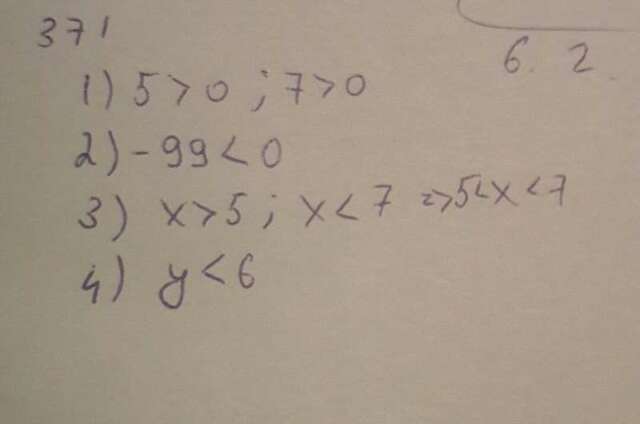 371
6. 2.
1) 5 > 0 ; 7 > 0
2) - 99 < 0
3) x > 5 ; x < 7 => 5 < x < 7
4) y < 6